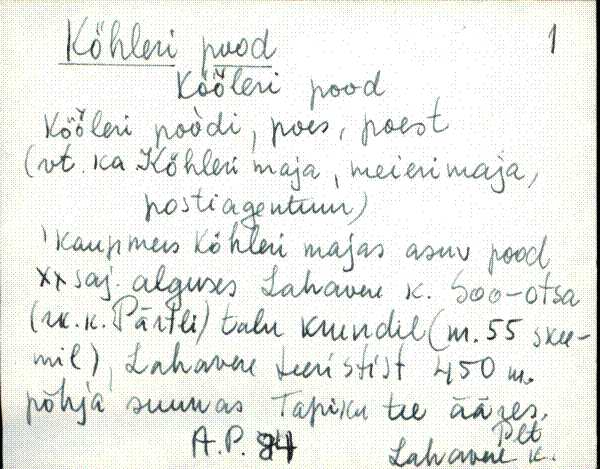 Köhleri pood 1
Kööleri pood
Kööleri poòdi, poes, poest
(vt. ka Köhleri maja, meierimaja,
postiagentuur)
kaupmees Köhleri majas asuv pood
XX saj. alguses Lahavere k. Soo-otsa
(rk. k. Pärtli) talu krundil (m. 55 skee-
mil), Lahavere teeristist 450 m.
põhja suunas Tapiku tee ääres.
Plt
A.P. 84 Lahavere k.